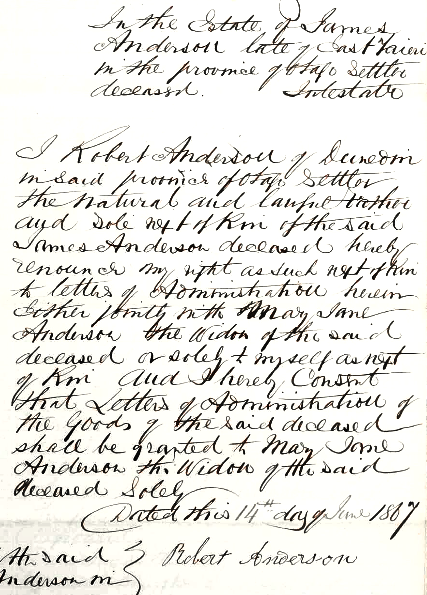 In the Estate of James
Anderson late of East Taieri
in the province of Otago Settler
deceased. Intestate
I Robert Anderson of Dunedin
in said province of Otago Settler
the natural and lawful father
and sole next of Kin of the said
James Anderson deceased hereby
renounce my right as such next of Kin
to letters of Administration herein
Either jointly with Mary Jane
Anderson the Widow of the said
deceased or solely to myself as next
of Kin And I hereby Consent
that Letters of Administration of
the Goods of the said deceased
shall be granted to Mary Jane
Anderson the Widow of the said
deceased Solely
Dated this 14th day of June 1867
the said
Anderson in
Robert Anderson